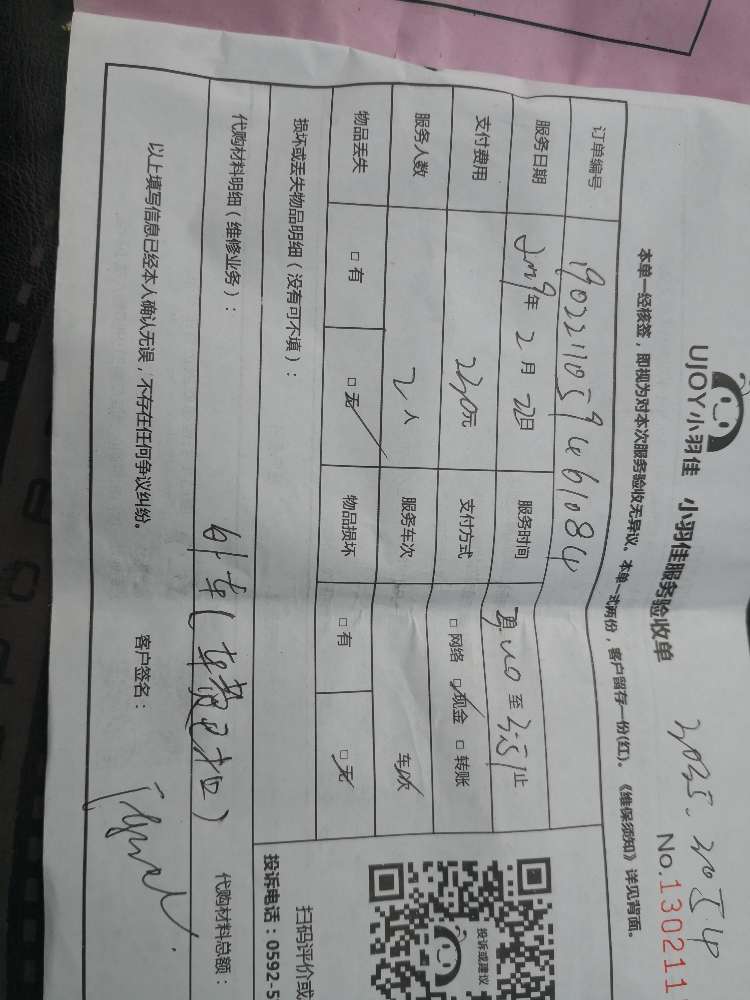 UJOY小羽佳 小羽佳服务验收单
No.130211
本单一经核签，即视为对本次服务验收无异议。本单一式两份，客户留存一份(红)。《维保须知》详见背面。
订单编号 1902211059461084
服务日期 2019年 2月 22日 服务时间 至 止
支付费用 230元 支付方式 □ 网络 □ 现金 □ 转账
服务人数 2人 服务车次 车次
物品丢失 □ 有 □ 无 物品损坏 □ 有 □ 无
损坏或丢失物品明细（没有可不填）：
代购材料明细（维修业务）： 代购材料总额：
以上填写信息已经本人确认无误，不存在任何争议纠纷。 客户签名：
投诉或建议
扫码评价或
投诉电话：0592-5